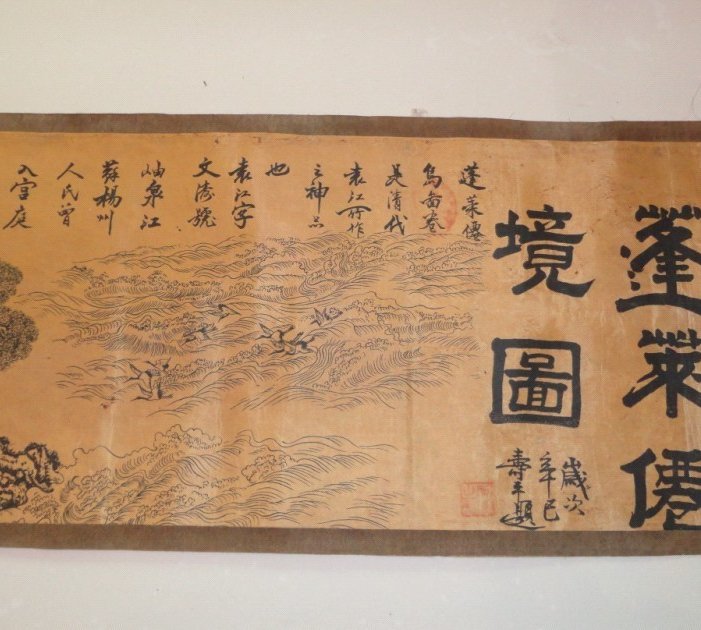 蓬萊僊
境圖
歲次
辛巳
壽平題
蓬萊僊
島畫卷
是清代
袁江所作
之神品
也
袁江字
文濤號
岫泉江
蘇楊州
人氏曾
入宮庭